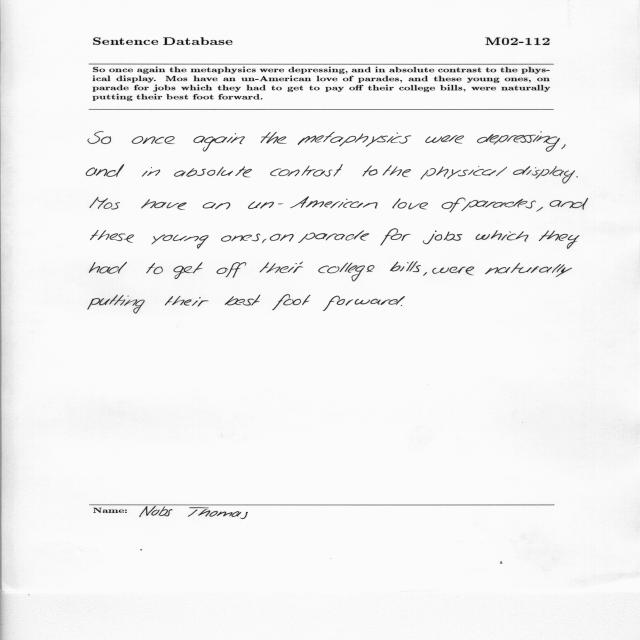 Sentence Database M02-112
So once again the metaphysics were depressing, and in absolute contrast to the phys-
ical display. Mos have an un-American love of parades, and these young ones, on
parade for jobs which they had to get to pay off their college bills, were naturally
putting their best foot forward.
So once again the metaphysics were depressing,
and in absolute contrast to the physical display.
Mos have an un-American love of parades, and
these young ones, on parade for jobs which they
had to get off their college bills, were naturally
putting their best foot forward.
Name: Nobs Thomas